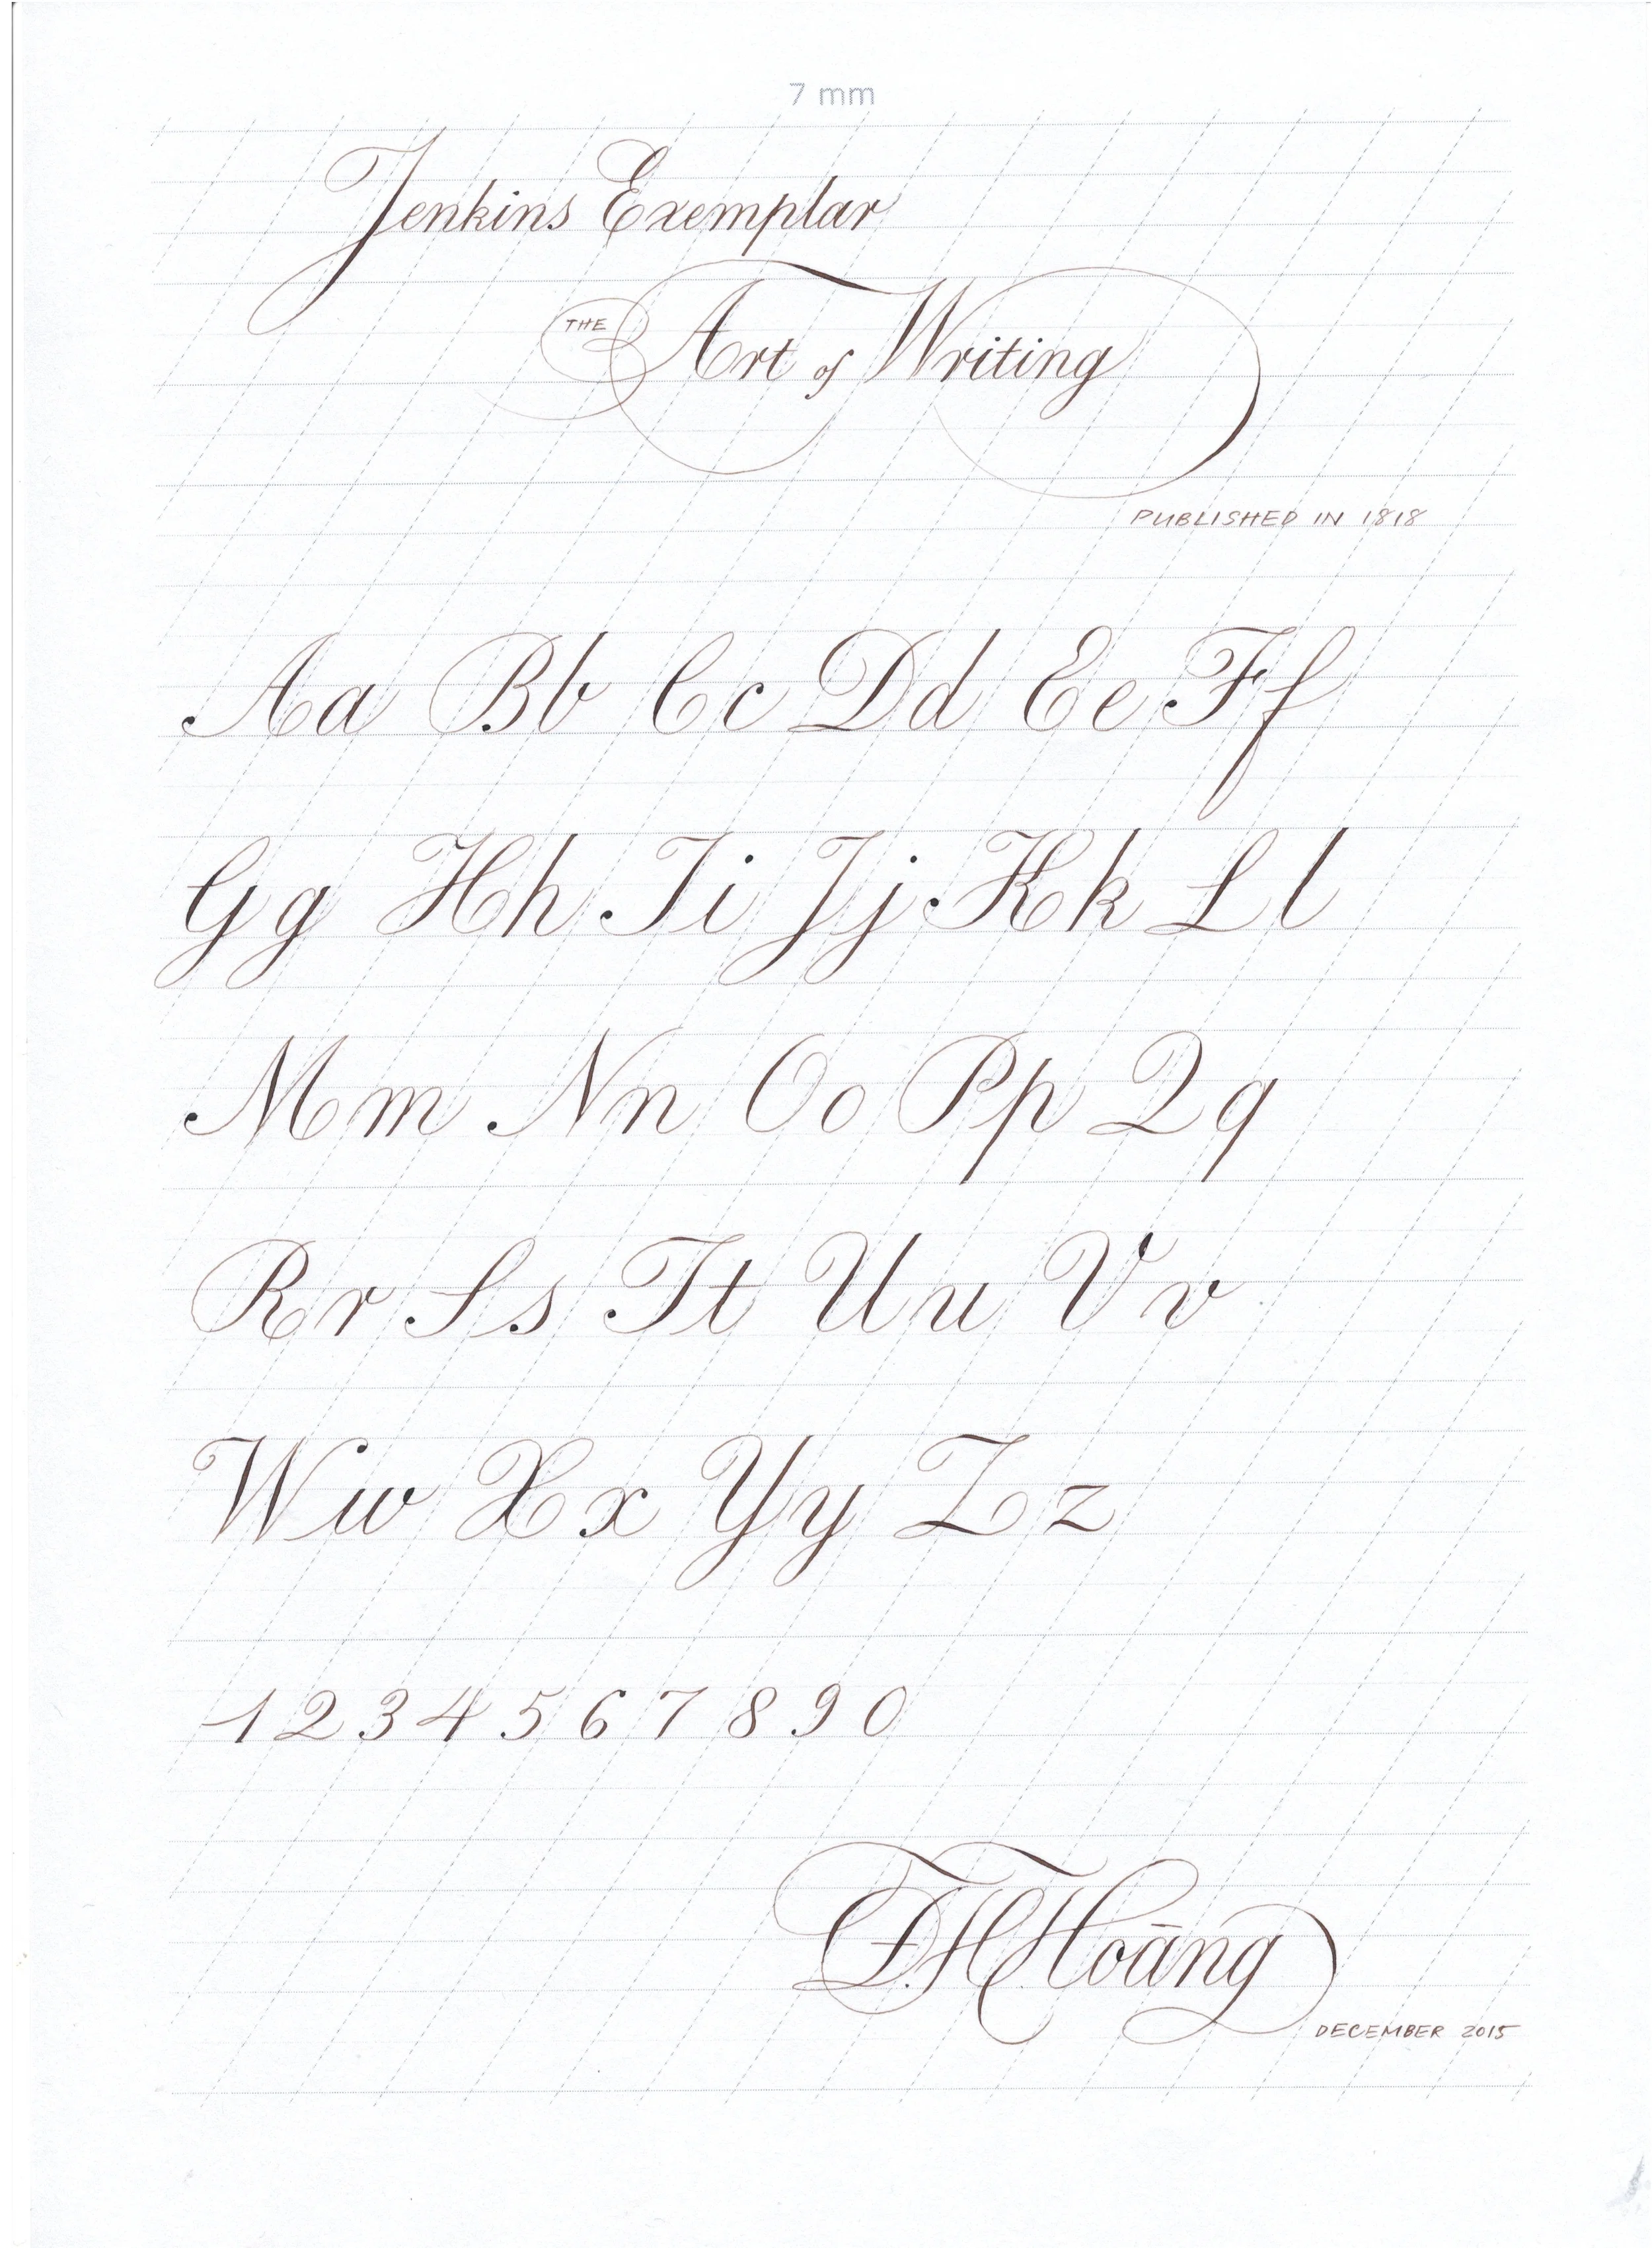 7 mm
Jenkins Exemplar
THE Art of Writing
PUBLISHED IN 1818
Aa Bb Cc Dd Ee Ff
Gg Hh Ii Jj Kk Ll
Mm Nn Oo Pp Qq
Rr Ss Tt Uu Vv
Ww Xx Yy Zz
1 2 3 4 5 6 7 8 9 0
Hoāng
DECEMBER 2015